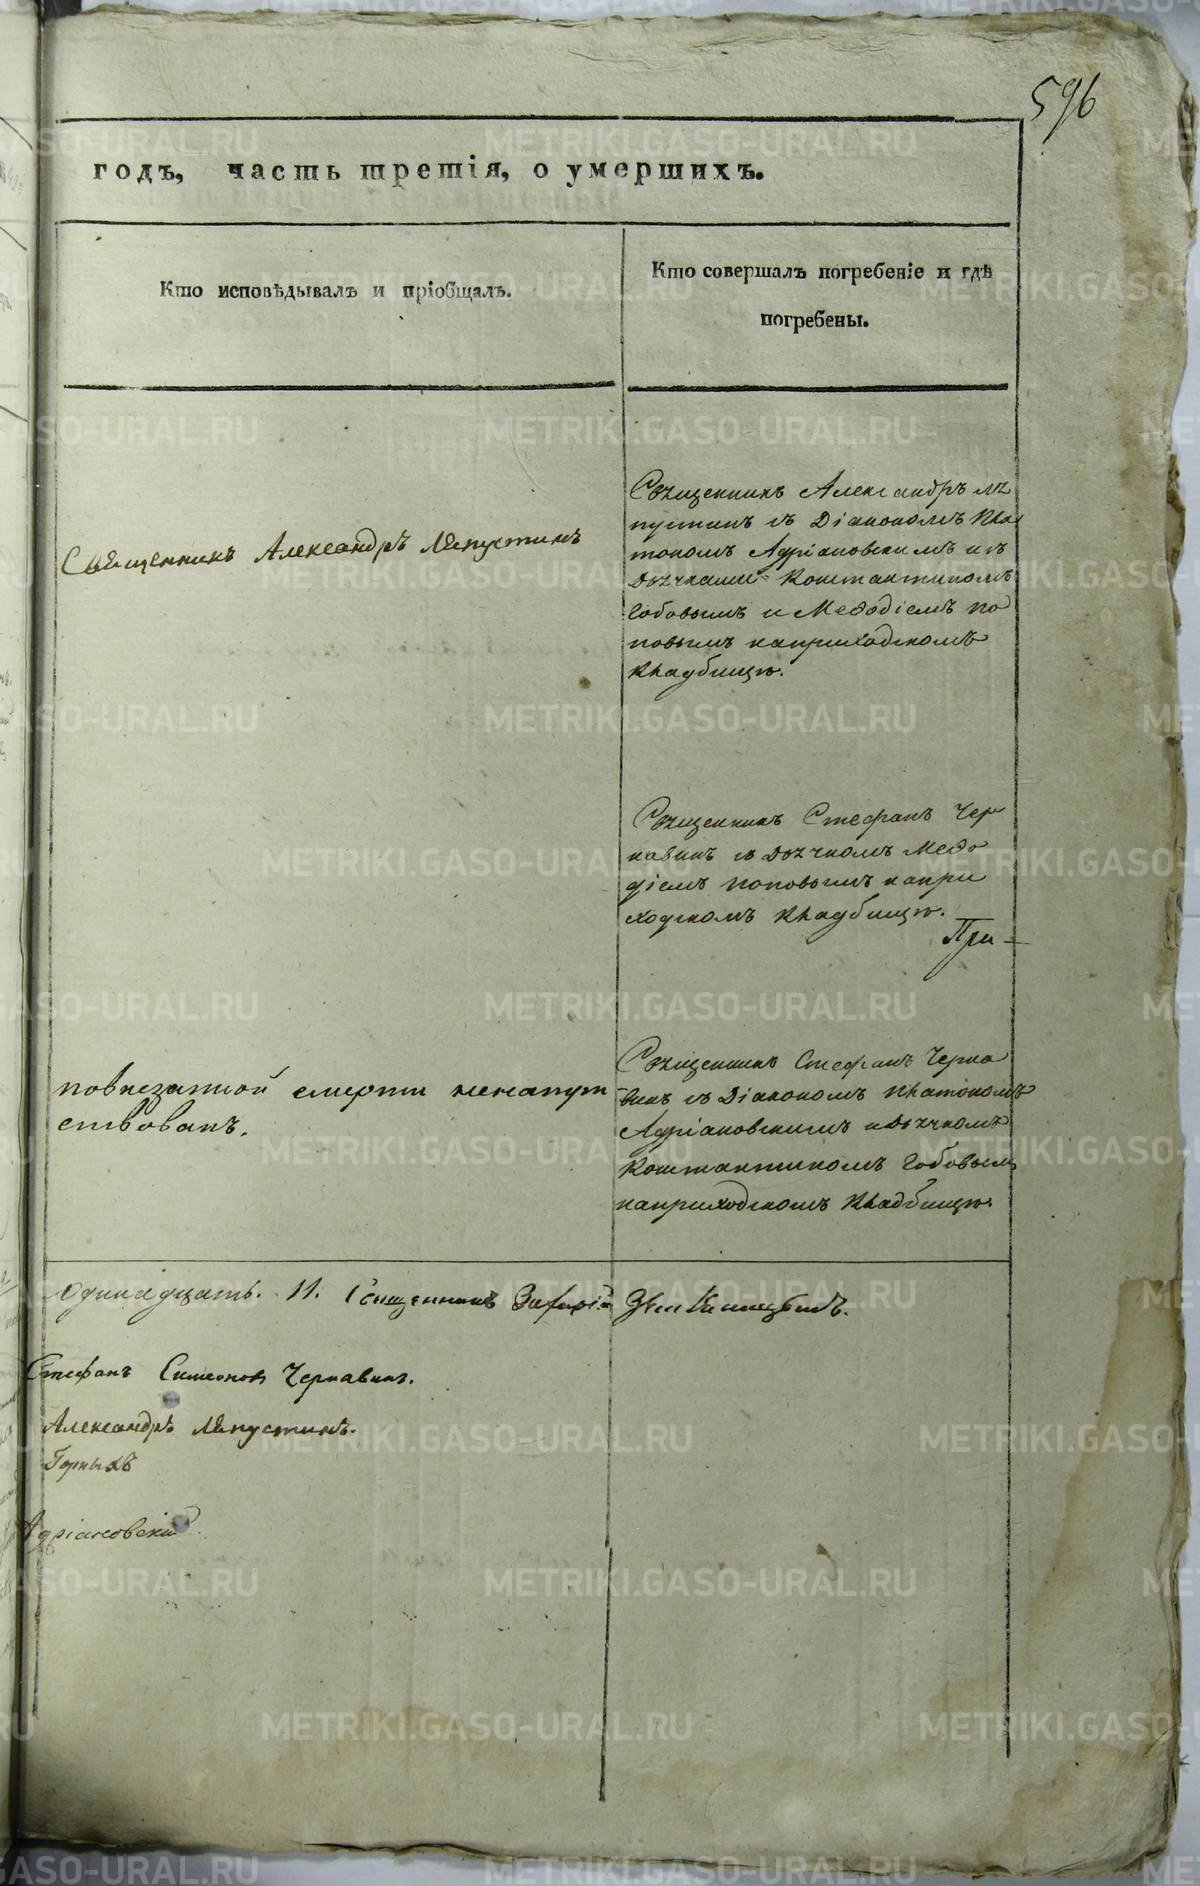 596
годъ, часть третія, о умершихъ.
Кто исповѣдывалъ и пріобщалъ.
Кто совершалъ погребеніе и гдѣ
погребены.
Священникъ Александръ Ляпустинъ
Священникъ Александръ Ля
пустинъ съ Діакономъ Пла
тономъ Адріановскимъ и съ
Дьячками Констактиномъ
Гобовымъ и Меѳодіемъ По
повымъ наприходскомъ
Кладбищѣ.
Священникъ Стефанъ Чер
навинъ съ Дьячкомъ Меѳо
діемъ Поповымъ напри
ходскомъ Кладбищѣ.
При-
повнезапной смерти ненапут
ствованъ.
Священникъ Стефанъ Черна
винъ съ Діакономъ Платономъ
Адріановскимъ и Дьячкомъ
Констактиномъ Гобовымъ
наприходскомъ Кладбищѣ.
одинадцать. 11. Священникъ
Стефанъ Симеоновъ Чернавинъ.
Александръ Ляпустинъ.
Горныхъ
Адріановскій
METRIKI.GASO-URAL.RU